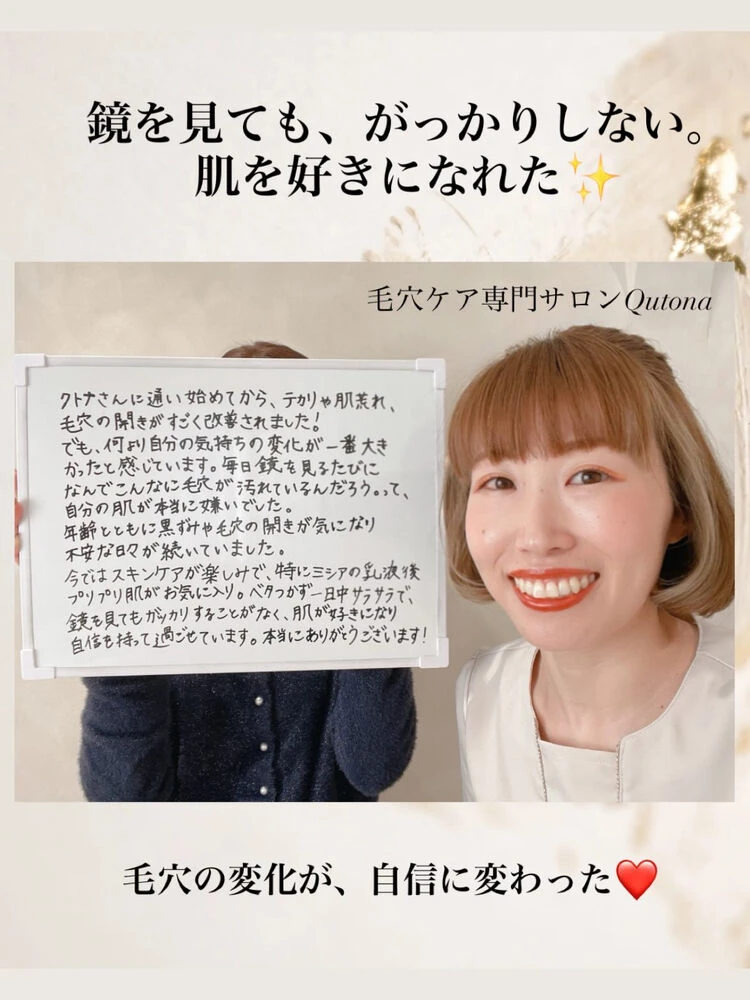 鏡を見ても、がっかりしない。
肌を好きになれた✨
毛穴ケア専門サロンQutona
クトナさんに通い始めてから、テカリや肌荒れ、
毛穴の開きがすごく改善されました!
でも、何より自分の気持ちの変化が一番大き
かったと感じています。毎日鏡を見るたびに
なんでこんなに毛穴が汚れているんだろう。って、
自分の肌が本当に嫌いでした。
年齢とともに黒ずみや毛穴の開きが気になり
不安な日々が続いていました。
今ではスキンケアが楽しみで、特にミシアの乳液後
プリプリ肌がお気に入り。ベタつかず一日中サラサラで、
鏡を見てもガッカリすることがなく、肌が好きになり
自信を持って過ごせています。本当にありがとうございます!
毛穴の変化が、自信に変わった❤️